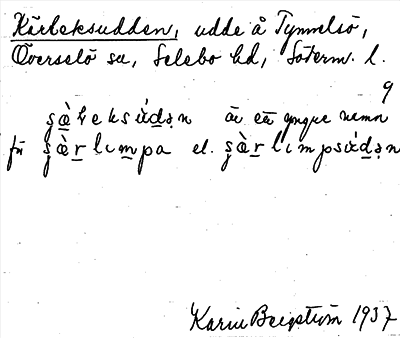 Kärleksudden, udde å Tynnelsö,
Överselö sn, Selebo hd, Söderm. l.
9
şὰ̱ɽleksɯ́d̲ə̣n är ett yngre namn
för şὰr̲lım̲pa el. şὰr̲lımpsɯ́d̲ə̣n
Karin Bergström 1937